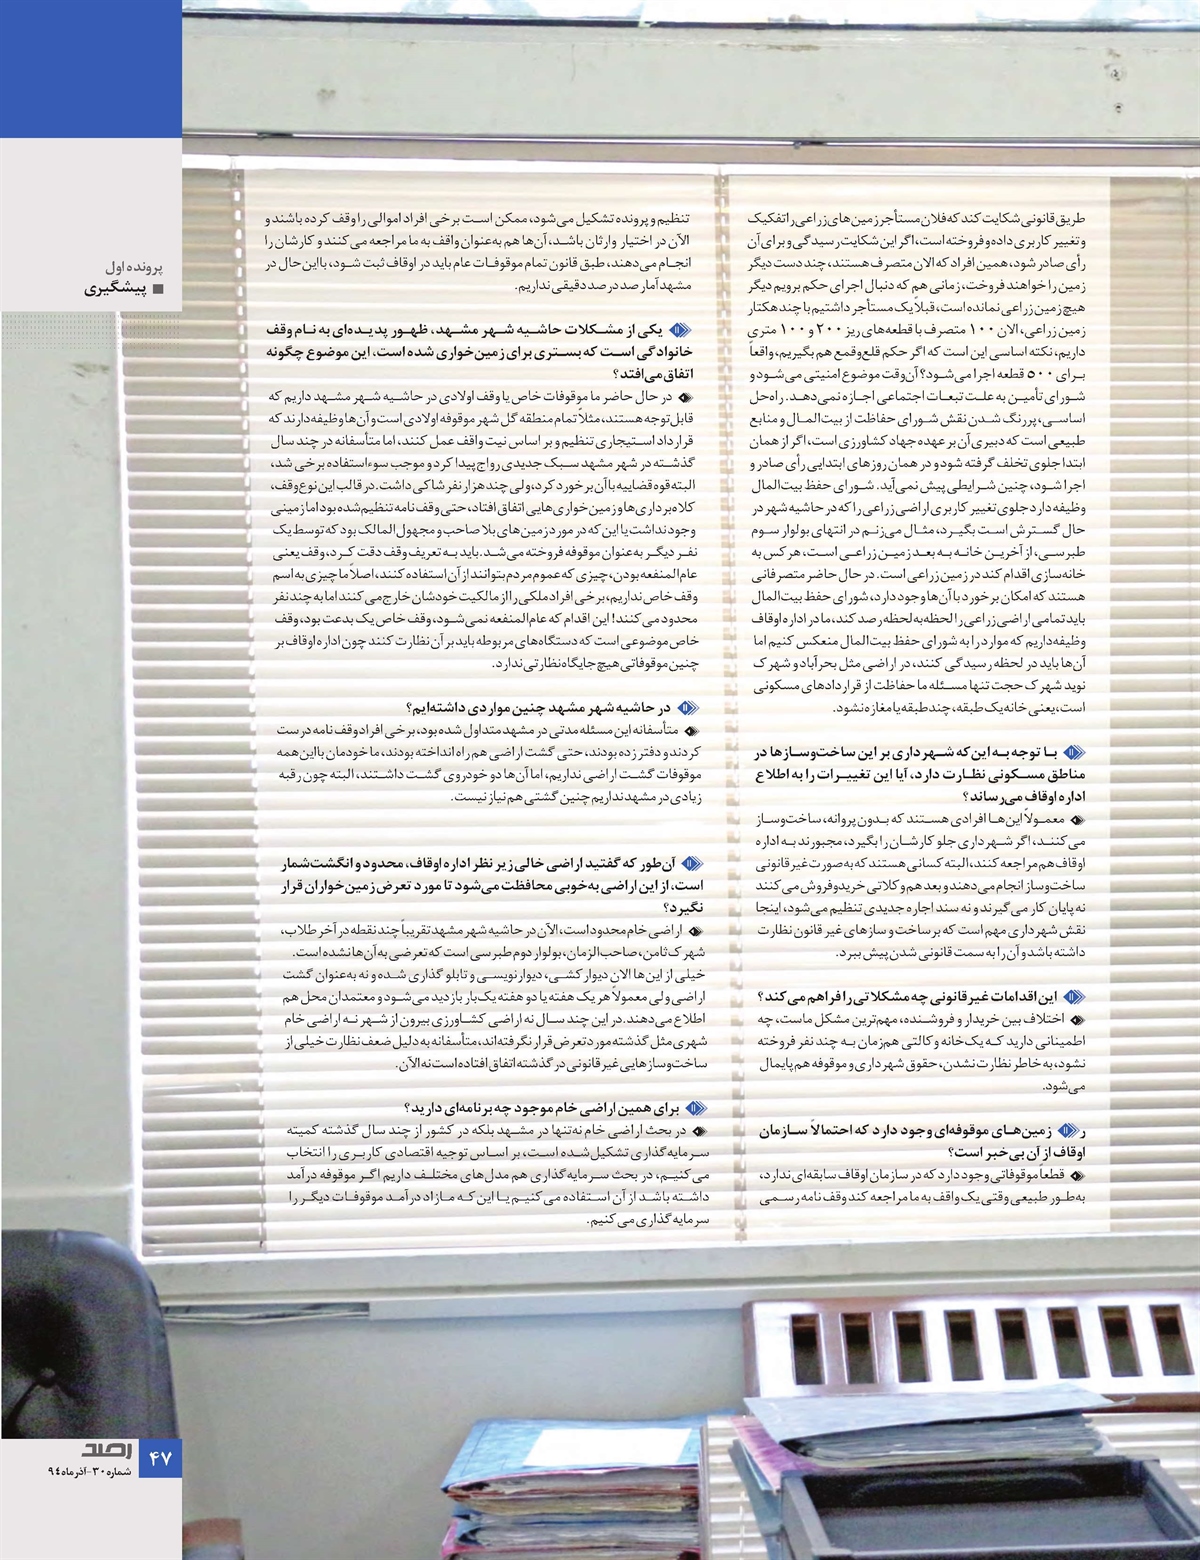 پرونده اول
پیشگیری
طریق قانونی شکایت کند که فلان مستأجر زمین‌های زراعی را تفکیک
و تغییر کاربری داده و فروخته است، اگر این شکایت رسیدگی و برای آن
رأی صادر شود، همین افراد که الان متصرف هستند، چند دست دیگر
زمین را خواهند فروخت، زمانی هم که دنبال اجرای حکم برویم دیگر
هیچ زمین زراعی نمانده است، قبلاً یک مستأجر داشتیم با چند هکتار
زمین زراعی، الان ۱۰۰ متصرف با قطعه‌های ریز ۲۰۰ و ۱۰۰ متری
داریم، نکته اساسی این است که اگر حکم قلع‌وقمع هم بگیریم، واقعاً
برای ۵۰۰ قطعه اجرا می‌شود؟ آن‌وقت موضوع امنیتی می‌شود و
شورای تأمین به علت تبعات اجتماعی اجازه نمی‌دهد. راه‌حل
اساسی، پررنگ شدن نقش شورای حفاظت از بیت‌المال و منابع
طبیعی است که دبیری آن بر عهده جهاد کشاورزی است، اگر از همان
ابتدا جلوی تخلف گرفته شود و در همان روزهای ابتدایی رأی صادر و
اجرا شود، چنین شرایطی پیش نمی‌آید. شورای حفظ بیت‌المال
وظیفه دارد جلوی تغییر کاربری اراضی زراعی را که در حاشیه شهر در
حال گسترش است بگیرد، مثال می‌زنم در انتهای بولوار سوم
طبرسی، از آخرین خانه به بعد زمین زراعی است، هر کس به
خانه‌سازی اقدام کند در زمین زراعی است. در حال حاضر متصرفانی
هستند که امکان برخورد با آن‌ها وجود دارد، شورای حفظ بیت‌المال
باید تمامی اراضی زراعی را لحظه‌به‌لحظه رصد کند، ما در اداره اوقاف
وظیفه داریم که موارد را به شورای حفظ بیت‌المال منعکس کنیم اما
آن‌ها باید در لحظه رسیدگی کنند، در اراضی مثل بحرآباد و شهرک
نوید شهرک حجت تنها مسئله ما حفاظت از قراردادهای مسکونی
است، یعنی خانه یک طبقه، چند طبقه یا مغازه نشود.
با توجه به این‌که شهرداری بر این ساخت‌وسازها در
مناطق مسکونی نظارت دارد، آیا این تغییرات را به اطلاع
اداره اوقاف می‌رساند؟
معمولاً این‌ها افرادی هستند که بدون پروانه، ساخت‌وساز
می‌کنند، اگر شهرداری جلو کارشان را بگیرد، مجبورند به اداره
اوقاف هم مراجعه کنند، البته کسانی هستند که به‌صورت غیرقانونی
ساخت‌وساز انجام می‌دهند و بعد هم وکالتی خریدوفروش می‌کنند
نه پایان کار می‌گیرند و نه سند اجاره جدیدی تنظیم می‌شود، اینجا
نقش شهرداری مهم است که بر ساخت و سازهای غیر قانون نظارت
داشته باشد و آن را به سمت قانونی شدن پیش ببرد.
این اقدامات غیرقانونی چه مشکلاتی را فراهم می‌کند؟
اختلاف بین خریدار و فروشنده، مهم‌ترین مشکل ماست، چه
اطمینانی دارید که یک خانه وکالتی هم‌زمان به چند نفر فروخته
نشود، به خاطر نظارت نشدن، حقوق شهرداری و موقوفه هم پایمال
می‌شود.
ر زمین‌های موقوفه‌ای وجود دارد که احتمالاً سازمان
اوقاف از آن بی‌خبر است؟
قطعاً موقوفاتی وجود دارد که در سازمان اوقاف سابقه‌ای ندارد،
به‌طور طبیعی وقتی یک واقف به ما مراجعه کند وقف نامه رسمی
تنظیم و پرونده تشکیل می‌شود، ممکن است برخی افراد اموالی را وقف کرده باشند و
الآن در اختیار وارثان باشد، آن‌ها هم به‌عنوان واقف به ما مراجعه می‌کنند و کارشان را
انجام می‌دهند، طبق قانون تمام موقوفات عام باید در اوقاف ثبت شود، بااین حال در
مشهد آمار صد در صد دقیقی نداریم.
یکی از مشکلات حاشیه شهر مشهد، ظهور پدیده‌ای به نام وقف
خانوادگی است که بستری برای زمین‌خواری شده است، این موضوع چگونه
اتفاق می‌افتد؟
در حال حاضر ما موقوفات خاص یا وقف اولادی در حاشیه شهر مشهد داریم که
قابل‌توجه هستند، مثلاً تمام منطقه گل شهر موقوفه اولادی است و آن‌ها وظیفه دارند که
قرارداد استیجاری تنظیم و بر اساس نیت واقف عمل کنند، اما متأسفانه در چند سال
گذشته در شهر مشهد سبک جدیدی رواج پیدا کرد و موجب سوءاستفاده برخی شد،
البته قوه قضاییه با آن برخورد کرد، ولی چند هزار نفر شاکی داشت. در قالب این نوع وقف،
کلاه‌برداری‌ها و زمین‌خواری‌هایی اتفاق افتاد، حتی وقف نامه تنظیم شده بود اما زمینی
وجود نداشت یا این که در مورد زمین‌های بلا صاحب و مجهول المالک بود که توسط یک
نفر دیگر به‌عنوان موقوفه فروخته می‌شد. باید به تعریف وقف دقت کرد، وقف یعنی
عام‌المنفعه بودن، چیزی که عموم مردم بتوانند از آن استفاده کنند، اصلاً ما چیزی به اسم
وقف خاص نداریم، برخی افراد ملکی را از مالکیت خودشان خارج می‌کنند اما به چند نفر
محدود می‌کنند! این اقدام که عام‌المنفعه نمی‌شود، وقف خاص یک بدعت بود، وقف
خاص موضوعی است که دستگاه‌های مربوطه باید بر آن نظارت کنند چون اداره اوقاف بر
چنین موقوفاتی هیچ جایگاه نظارتی ندارد.
در حاشیه شهر مشهد چنین مواردی داشته‌ایم؟
متأسفانه این مسئله مدتی در مشهد متداول شده بود، برخی افراد وقف نامه درست
کردند و دفتر زده بودند، حتی گشت اراضی هم راه انداخته بودند، ما خودمان بااین همه
موقوفات گشت اراضی نداریم، اما آن‌ها دو خودروی گشت داشتند، البته چون رقبه
زیادی در مشهد نداریم چنین گشتی هم نیاز نیست.
آن‌طور که گفتید اراضی خالی زیر نظر اداره اوقاف، محدود و انگشت‌شمار
است، از این اراضی به‌خوبی محافظت می‌شود تا مورد تعرض زمین‌خواران قرار
نگیرد؟
اراضی خام محدود است، الآن در حاشیه شهر مشهد تقریباً چند نقطه در آخر طلاب،
شهرک ثامن، صاحب‌الزمان، بولوار دوم طبرسی است که تعرضی به آن‌ها نشده است.
خیلی از این‌ها الان دیوار کشی، دیوارنویسی و تابلو گذاری شده و نه به‌عنوان گشت
اراضی ولی معمولاً هر یک هفته یا دو هفته یک‌بار بازدید می‌شود و معتمدان محل هم
اطلاع می‌دهند. در این چند سال نه اراضی کشاورزی بیرون از شهر نه اراضی خام
شهری مثل گذشته مورد تعرض قرار نگرفته‌اند، متأسفانه به دلیل ضعف نظارت خیلی از
ساخت‌وسازهایی غیرقانونی در گذشته اتفاق افتاده است نه الآن.
برای همین اراضی خام موجود چه برنامه‌ای دارید؟
در بحث اراضی خام نه‌تنها در مشهد بلکه در کشور از چند سال گذشته کمیته
سرمایه‌گذاری تشکیل شده است، بر اساس توجیه اقتصادی کاربری را انتخاب
می‌کنیم، در بحث سرمایه‌گذاری هم مدل‌های مختلف داریم اگر موقوفه درآمد
داشته باشد از آن استفاده می‌کنیم یا این که مازاد درآمد موقوفات دیگر را
سرمایه‌گذاری می‌کنیم.
۴۷
رصد
شماره ۳۰-آذر ماه ۹۴